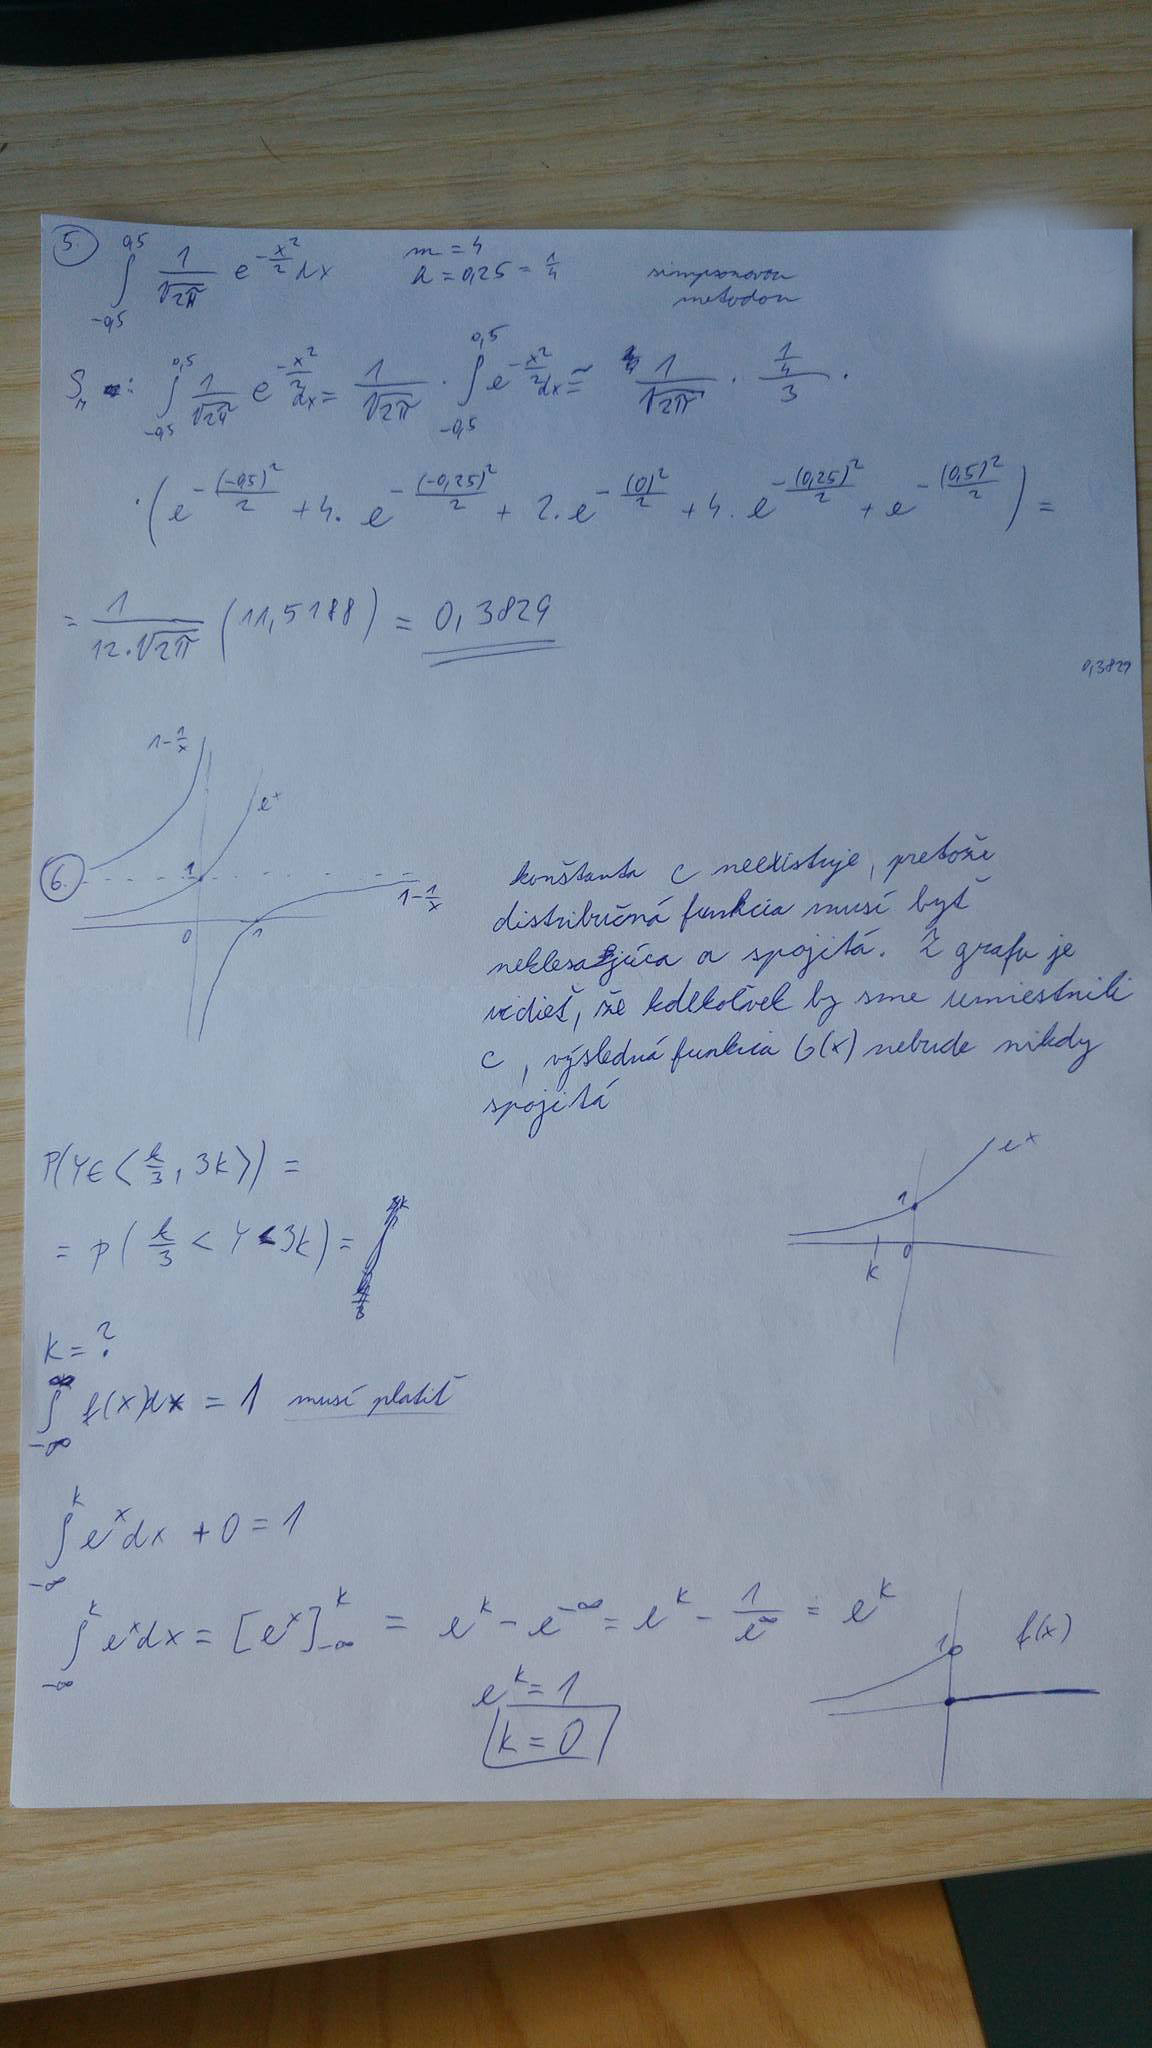 5. ∫_{-0,5}^{0,5} 1/√2π e^{-x²/2} dx m = 4 simpsonovou
h = 0,25 = 1/4 metodou
Sₙ: ∫_{-0,5}^{0,5} 1/√2π e^{-x²/2} dx = 1/√2π · ∫_{-0,5}^{0,5} e^{-x²/2} dx ≅ 1/√2π · (1/4)/3 ·
· (e^{-(-0,5)²/2} + 4 · e^{-(-0,25)²/2} + 2 · e^{-(0)²/2} + 4 · e^{-(0,25)²/2} + e^{-(0,5)²/2}) =
= 1/(12 · √2π) (11,5188) = 0,3829
0,3829
1 - 1/x
e^x
6. 1
1 - 1/x
0 1
konštanta c neexistuje, pretože
distribučná funkcia musí byť
neklesajúca a spojitá. Z grafu je
vidieť, že kdekoľvek by sme umiestnili
c, výsledná funkcia G(x) nebude nikdy
spojitá
P(Y ∈ ⟨k/3, 3k⟩) =
= P(k/3 < Y < 3k) =
e^x
1
k 0
k = ?
∫_{-∞}^{∞} f(x)dx = 1 musí platiť
∫_{-∞}^{k} e^x dx + 0 = 1
∫_{-∞}^{k} e^x dx = [e^x]_{-∞}^{k} = e^k - e^{-∞} = e^k - 1/e^∞ = e^k
e^k = 1
k = 0
1 f(x)